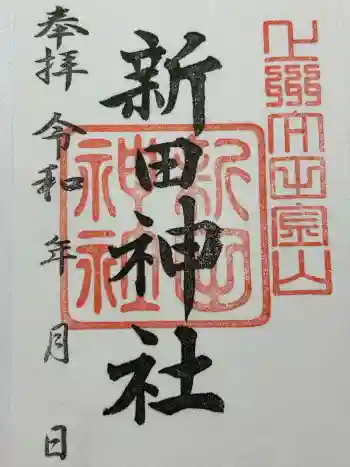 上野太田金山
新田神社
新田
神社
奉拝 令和 年 月 日